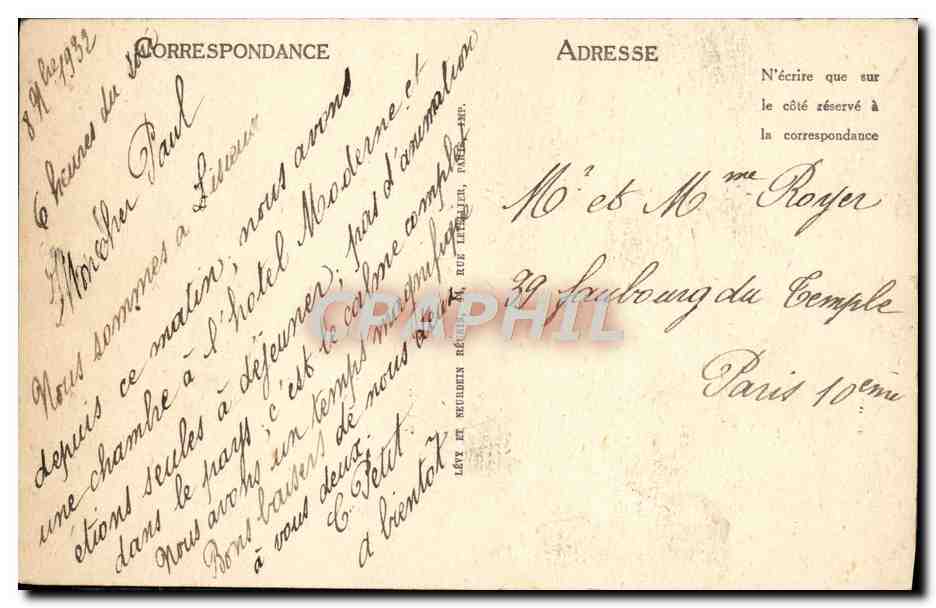 CORRESPONDANCE
8 9bre 1932
6 heures du soir
Mon Cher Paul
Nous sommes a Lisieux
depuis ce matin, nous avons
une chambre à l'hôtel Moderne et
étions seules à déjeuner, pas d'animation
dans le pays, c'est le calme complet
Nous avons un temps magnifique
Bons baisers de nous deux
à vous deux.
C. Petit
a bientot
LÉVY ET NEURDEIN RÉUNIS, 44, RUE LETELLIER, PARIS, IMP.
ADRESSE
N'écrire que sur
le côté réservé à
la correspondance
Mr et Mme Royer
39 faubourg du Temple
Paris 10eme
CPAPHIL